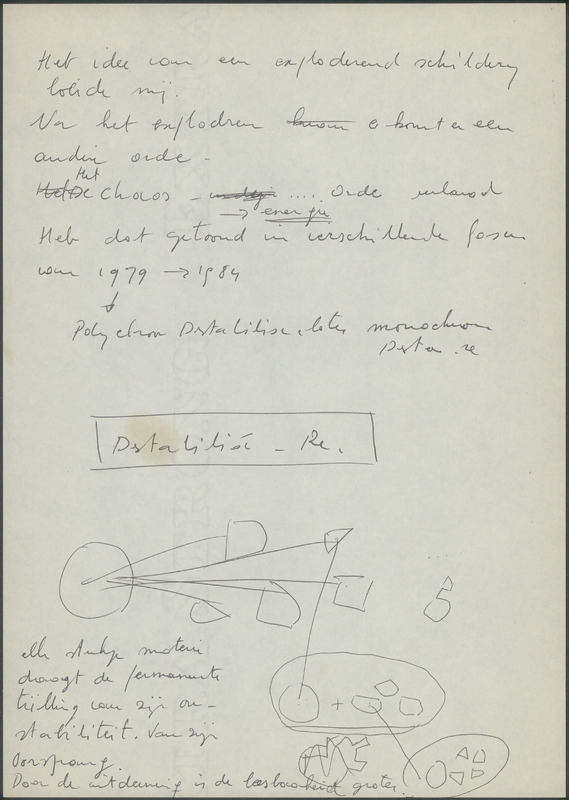 Het idee van een exploderend schildery
boeide mij.
Na het exploderen komt er een
andere orde -
Het chaos - .... orde verband
→ energie
Heb dat getoond in verschillende fasen
van 1979 → 1984
↓
Polychroom Destabilisé, later monochroom
Desta - re
Destabilisé - Re.
elk stukje materie
draagt de permanente
trilling van zijn on-
stabiliteit. Van zijn
oorsprong.
Door de uitdeining is de leesbaarheid groter.
+